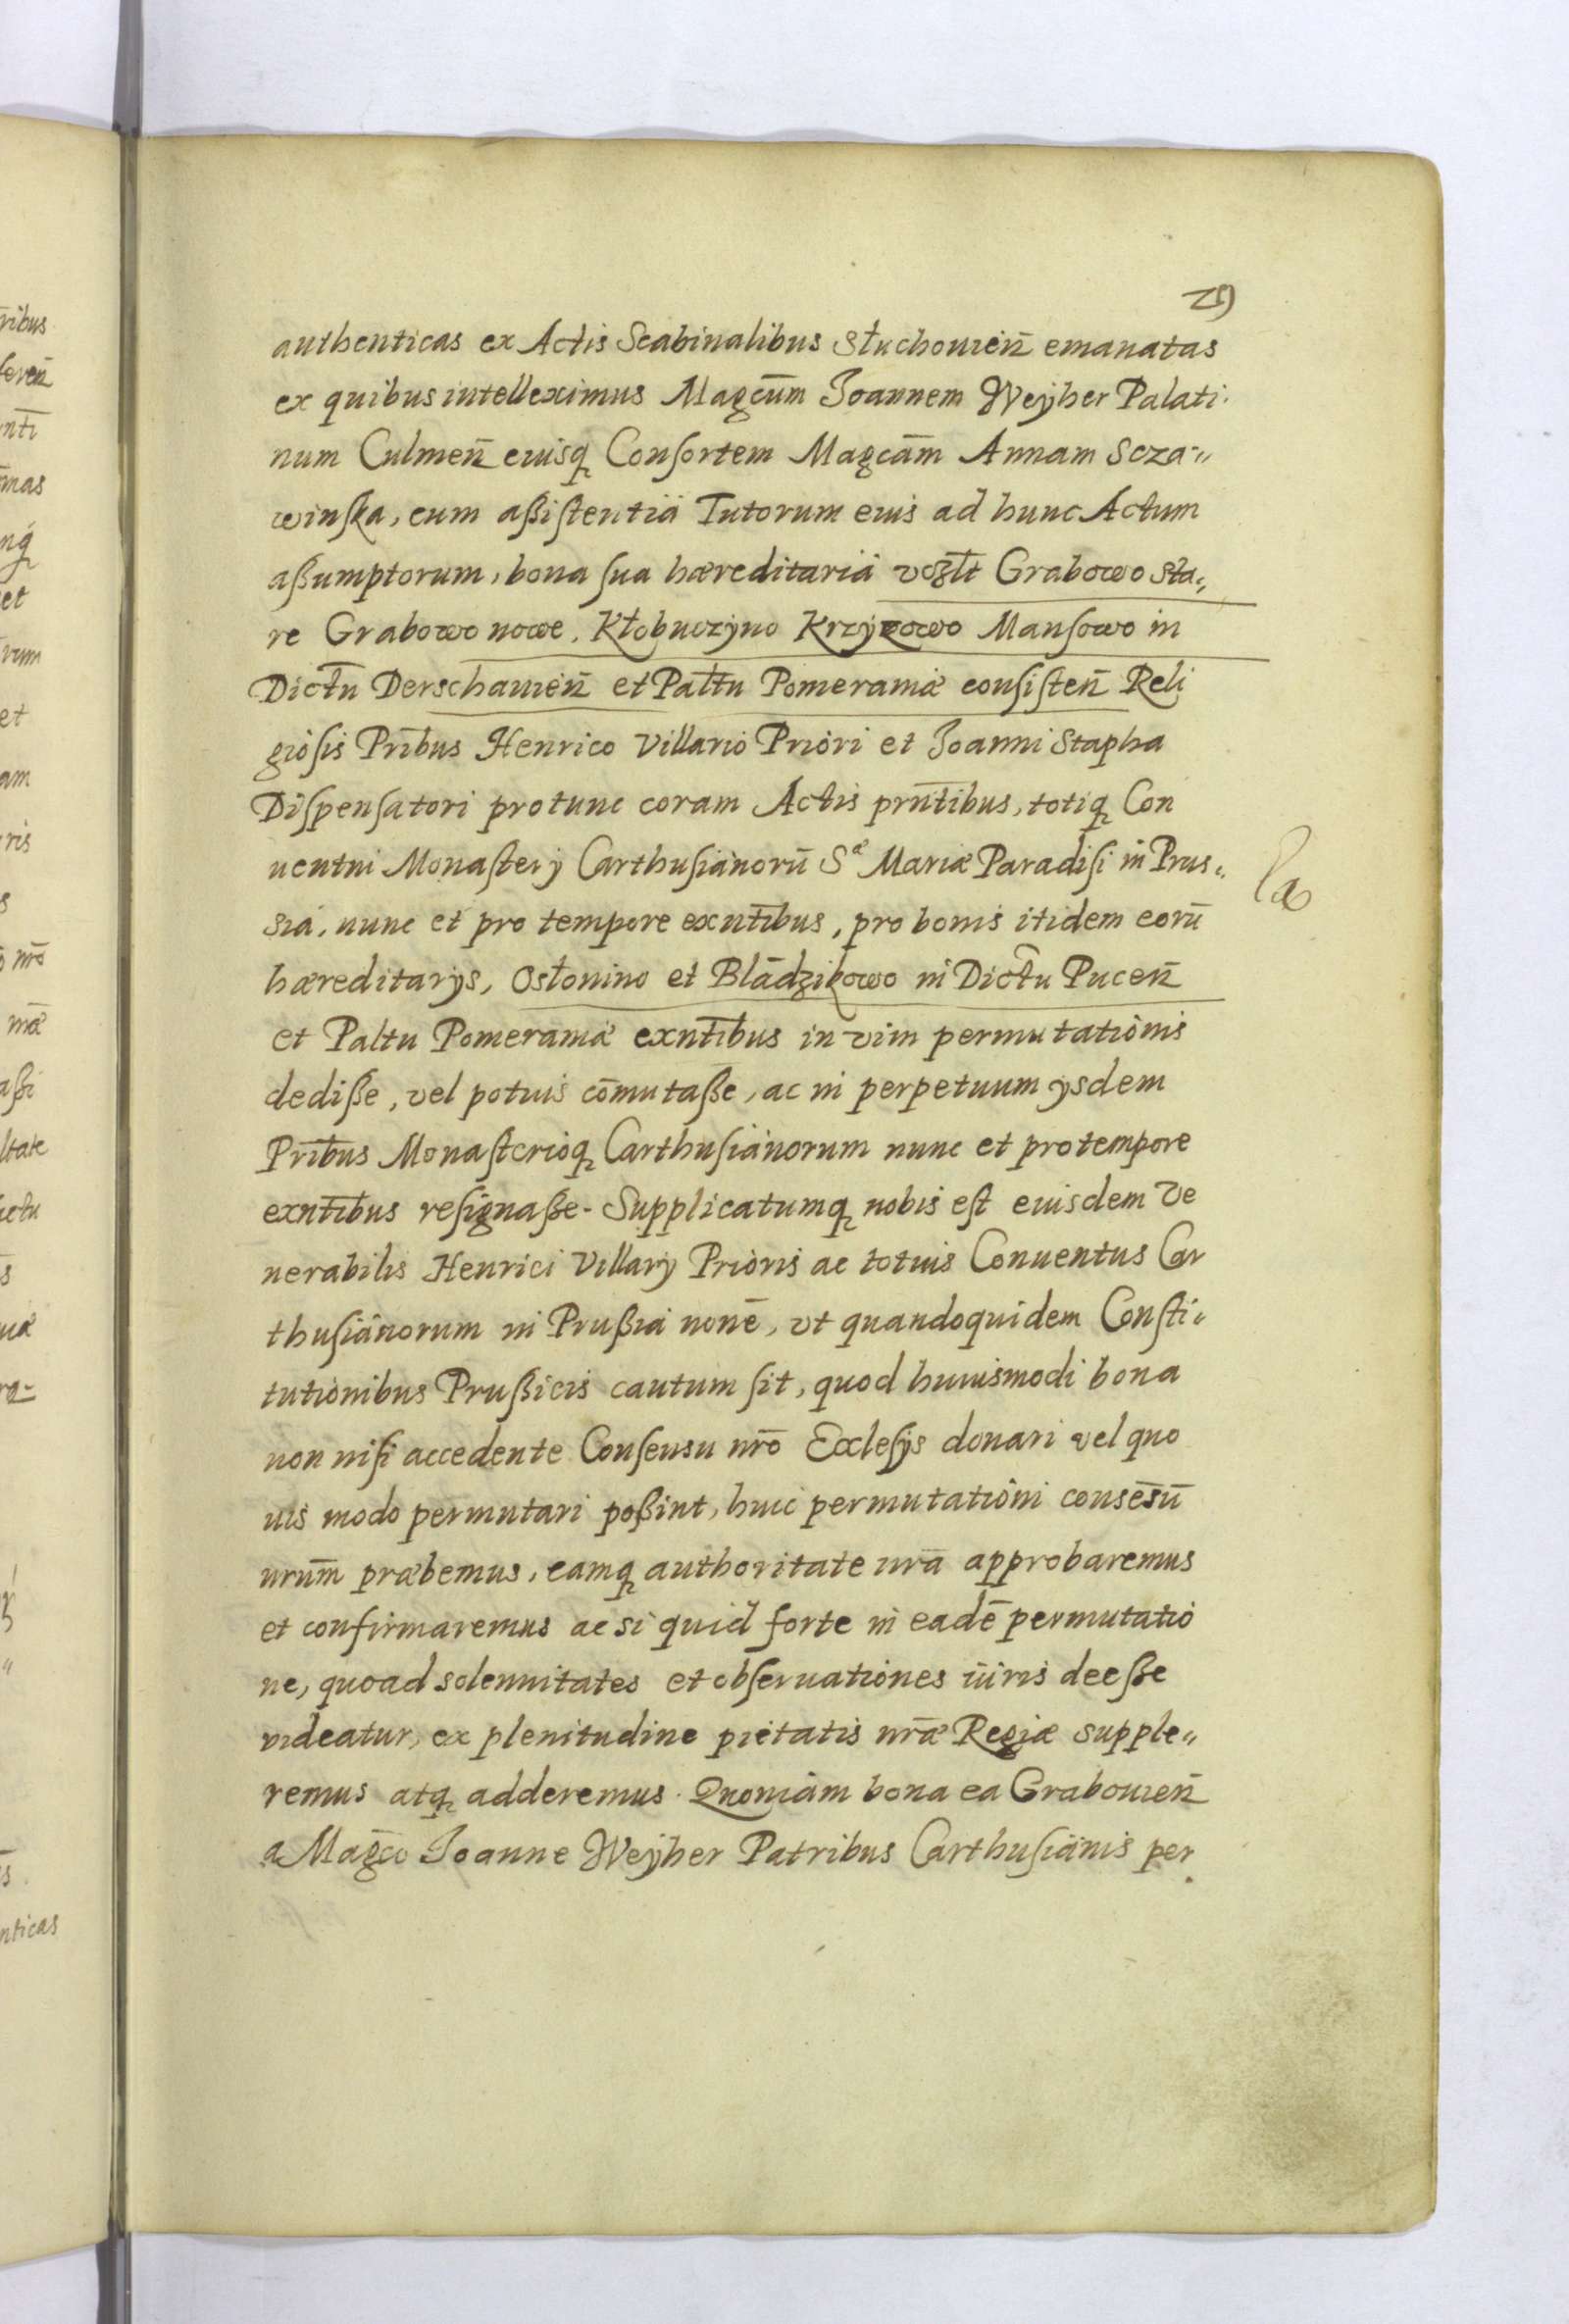 authenticas ex Actis Scabinalibus Słuchouień emanatas
ex quibus intelleximus Magcūm Joannem Weÿher Palati-
num Culmeñ eiusq Consortem Magcām Annam Scza-
winska, cum aßistentiä Tutorum eius ad hunc Actum
aßumptorum, bona sua hæreditariä vczlt Grabowo Sta-
re Grabowo nowe, Kłobuczÿno Krzÿzowo Mansowo in
Dictū Derschauień et Paltū Pomeraniæ consisteñ Reli
giosis Prībus Henrico Villario Priori et Joanni Stapha
Dispensatori protunc coram Actis prn̄tibus, totiq Con
uentui Monasterÿ Carthusianorū Sæ Mariæ Paradisi in Prus-
sia, nunc et pro tempore exn̄tibus, pro bonis itidem eorū
hæreditarÿs, Osłonino et Blādzikowo in Dictu Puceñ
et Paltu Pomeraniæ exn̄tibus in vim permutationis
dediße, vel potuis cōmutaße, ac in perpetuum ÿsdem
Prībus Monasterioq Carthusianorum nunc et pro tempore
exn̄tibus resignaße. Supplicatumq nobis est eiusdem Ve
nerabilis Henrici Villarÿ Prioris ac totius Conuentus Car
thusianorum in Prußia nonē, vt quandoquidem Consti-
tutionibus Prußicis cautum sit, quod huiusmodi bona
non nisi accedente Consensu nrō Ecclesÿs donari vel quo
uis modo permutari poßint, huic permutationi consēsū
nrūm præbemus, eamq authoritate nrā approbaremus
et confirmaremus ac si quid forte in eadē permutatio
ne, quoad solennitates et obseruationes iuris deeße
videatur, ex plenitudine pietatis nrǣ Regiæ supple-
remus atq adderemus. Quoniam bona ea Grabouień
a Magc̄o Joanne Weÿher Patribus Carthusianis per